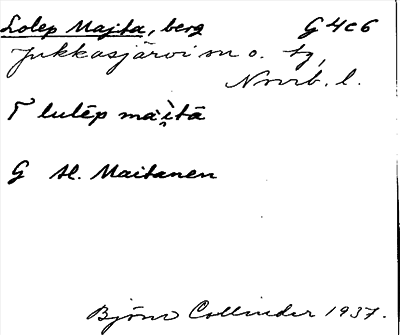 Lolep Majta, berg G4c6
Jukkasjärvi sn o. tg,
Norrb. l.
T lulēp mài̯tā
G st. Maitanen
Björn Collinder 1937.